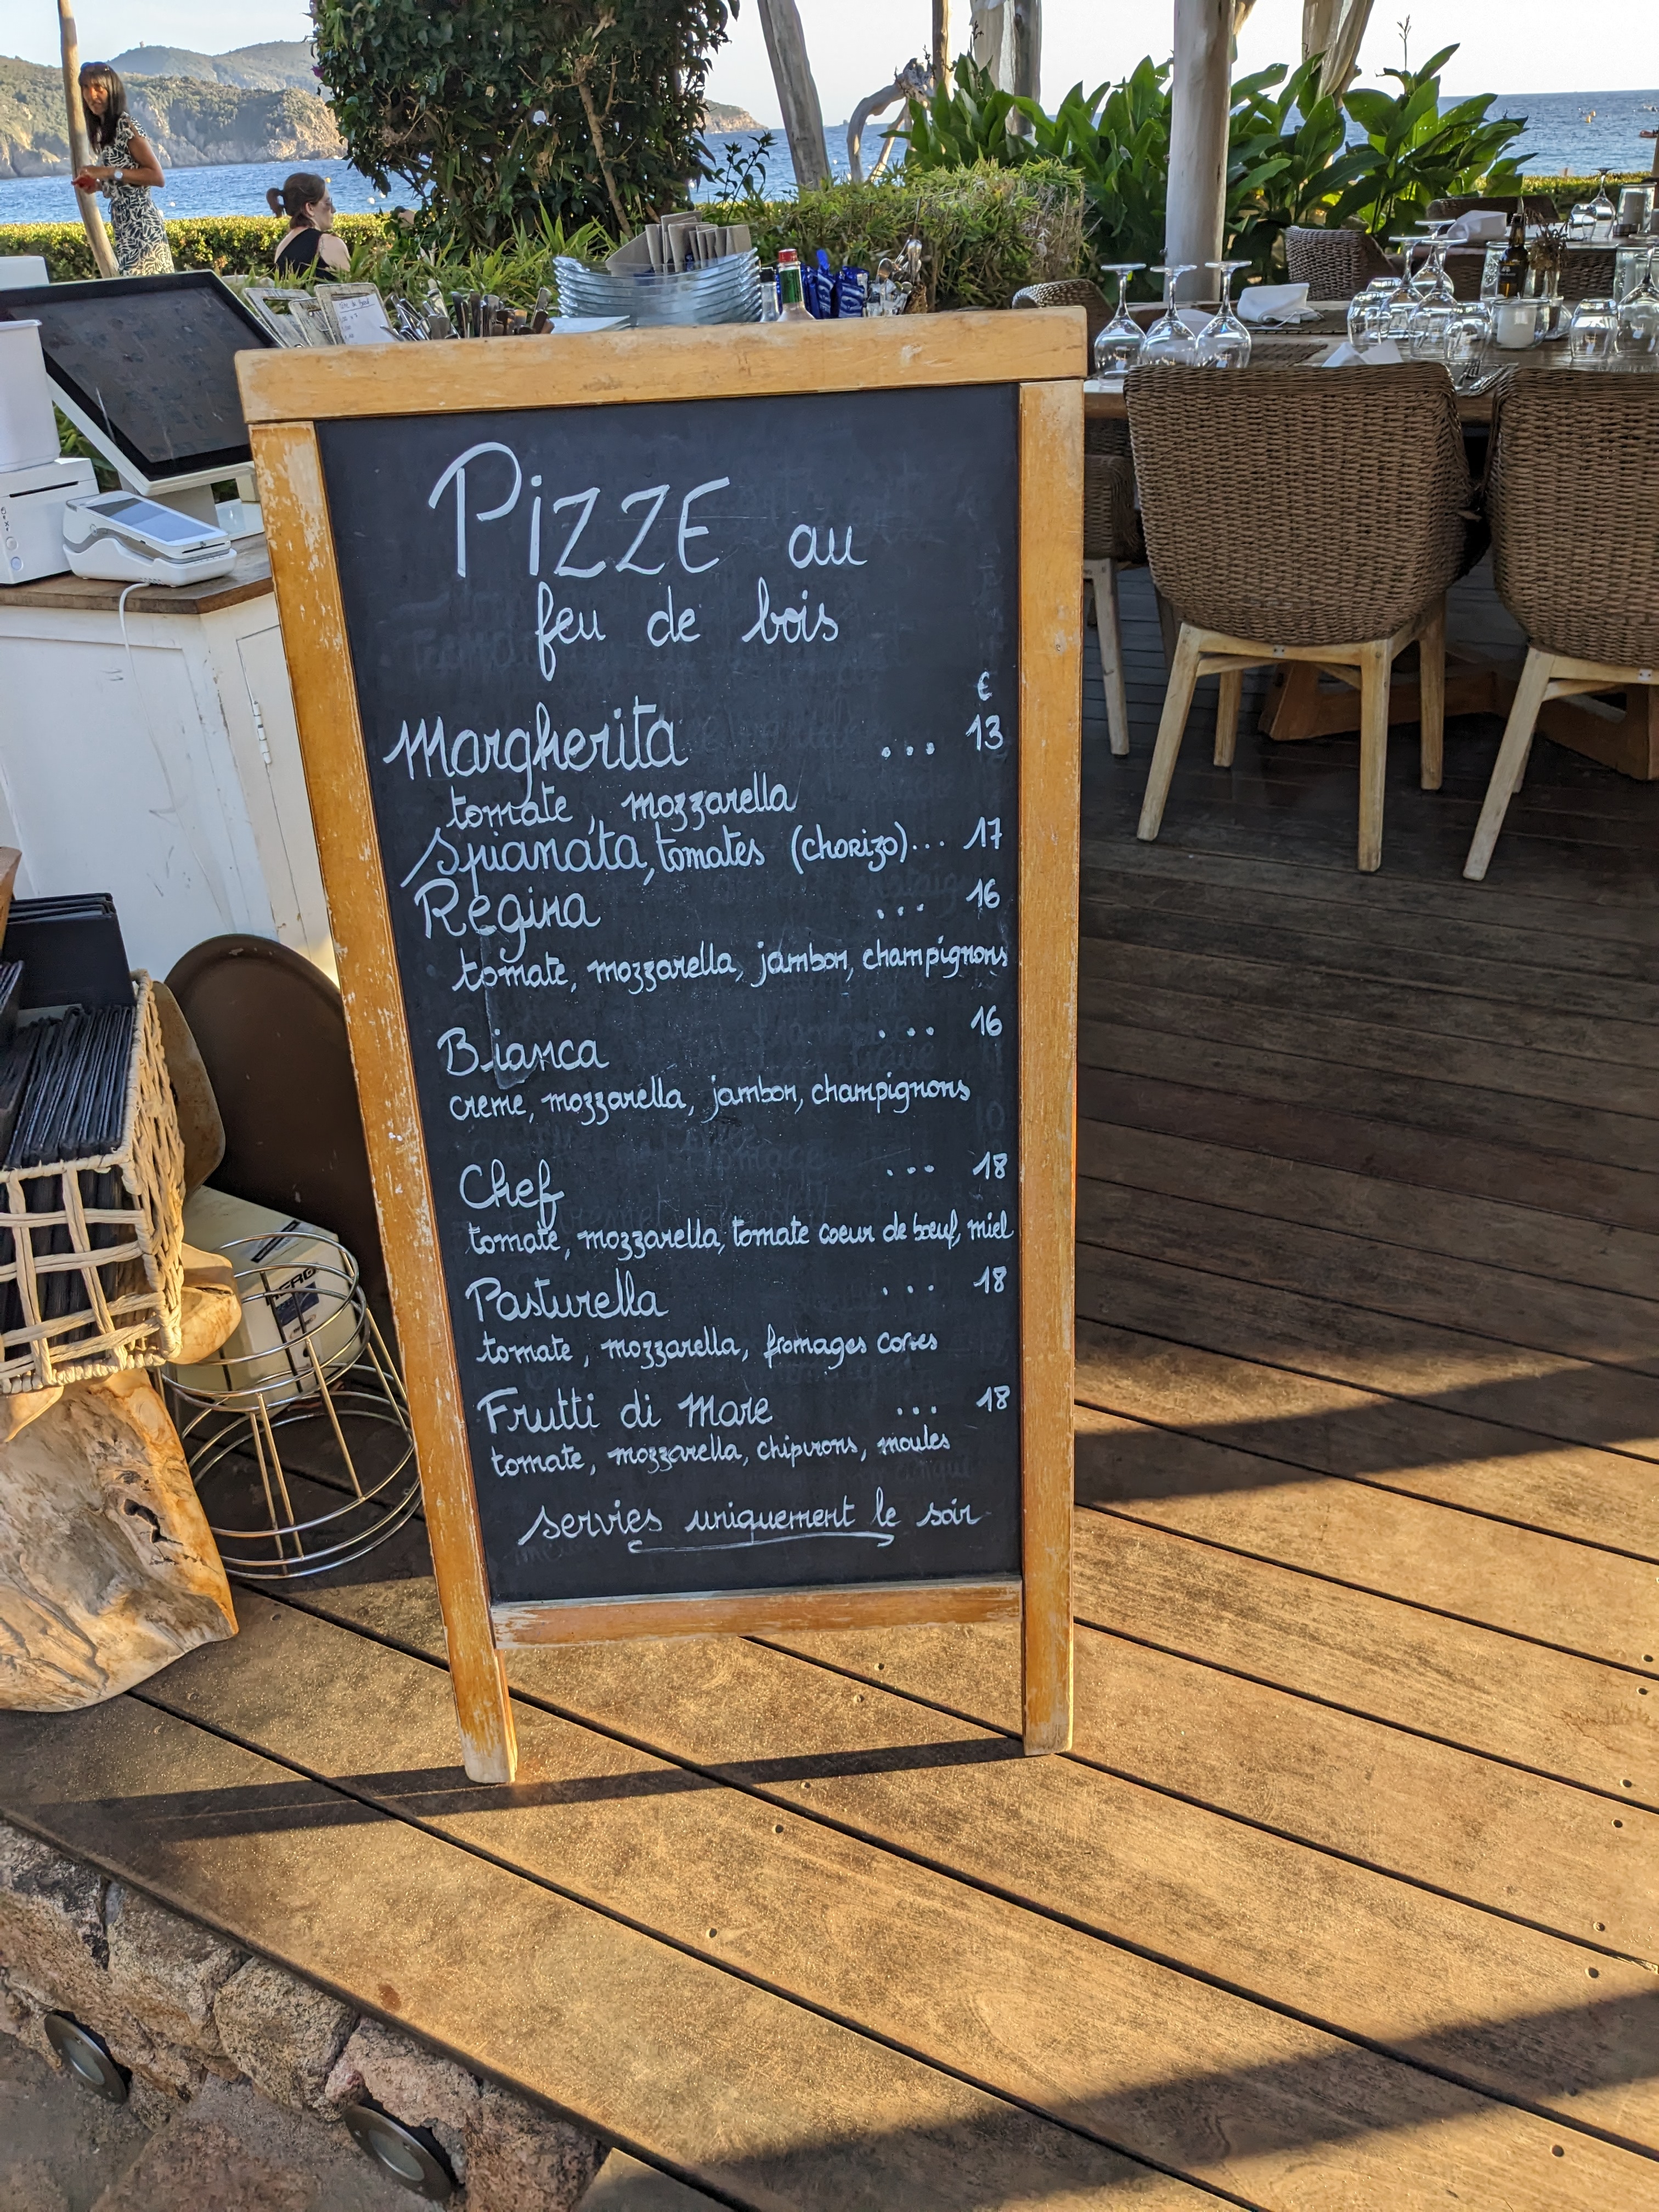 PiZZE au
feu de bois
€
Margherita ... 13
tomate, mozzarella
Spianata, tomates (chorizo)... 17
Regina ... 16
tomate, mozzarella, jambon, champignons
Bianca ... 16
creme, mozzarella, jambon, champignons
Chef ... 18
tomate, mozzarella, tomate coeur de bœuf, miel
Pasturella ... 18
tomate, mozzarella, fromages corses
Frutti di Mare ... 18
tomate, mozzarella, chipirons, moules
servies uniquement le soir